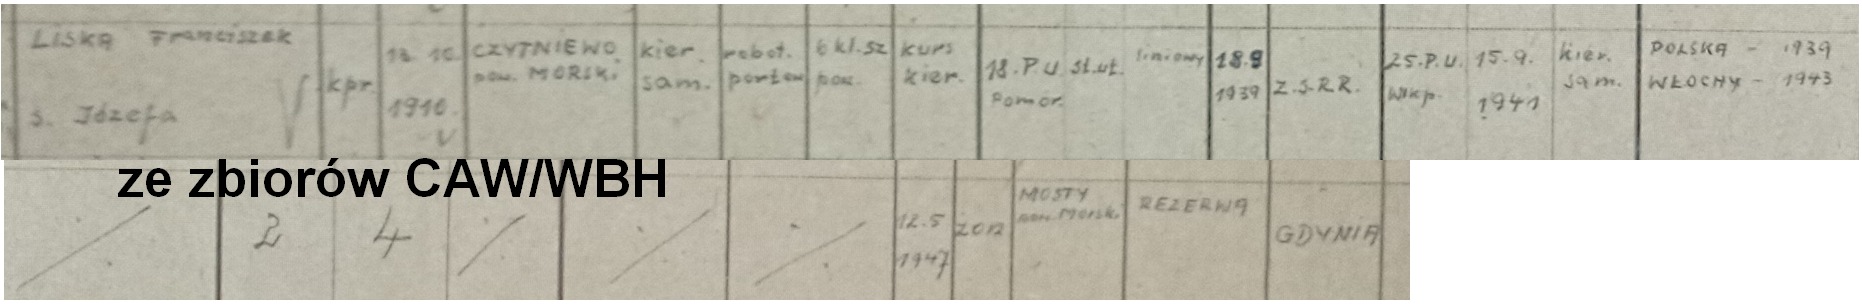 LISKA Franciszek
s. Józefa
kpr.
12. 10.
1910.
CZYTNIEWO
pow. MORSKI
kier.
sam.
robot.
portow
6 kl. sz
pow.
kurs
kier.
18. P.U.
Pomor.
st. uł.
liniowy
18.9
1939
Z.S.R.R.
25. P.U.
Wlkp.
15.9.
1941
kier.
sam.
POLSKA - 1939
WŁOCHY - 1943
ze zbiorów CAW/WBH
2
4
12.5
1947
żon
MOSTY
pow. Morski
REZERWA
GDYNIA